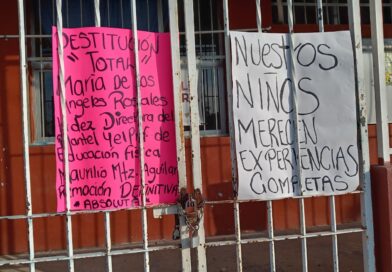 DESTITUCIÓN
"TOTAL"
María De los
Angeles Rosales
Directora del
Plantel Y el Prof de
Educación física
Maurilio Mtz. Aguilar
Remoción DEFINITIVA
*ABSOLUTA
NUESTROS
NIÑOS
MERECEN
EXPERIENCIAS
COMPLETAS